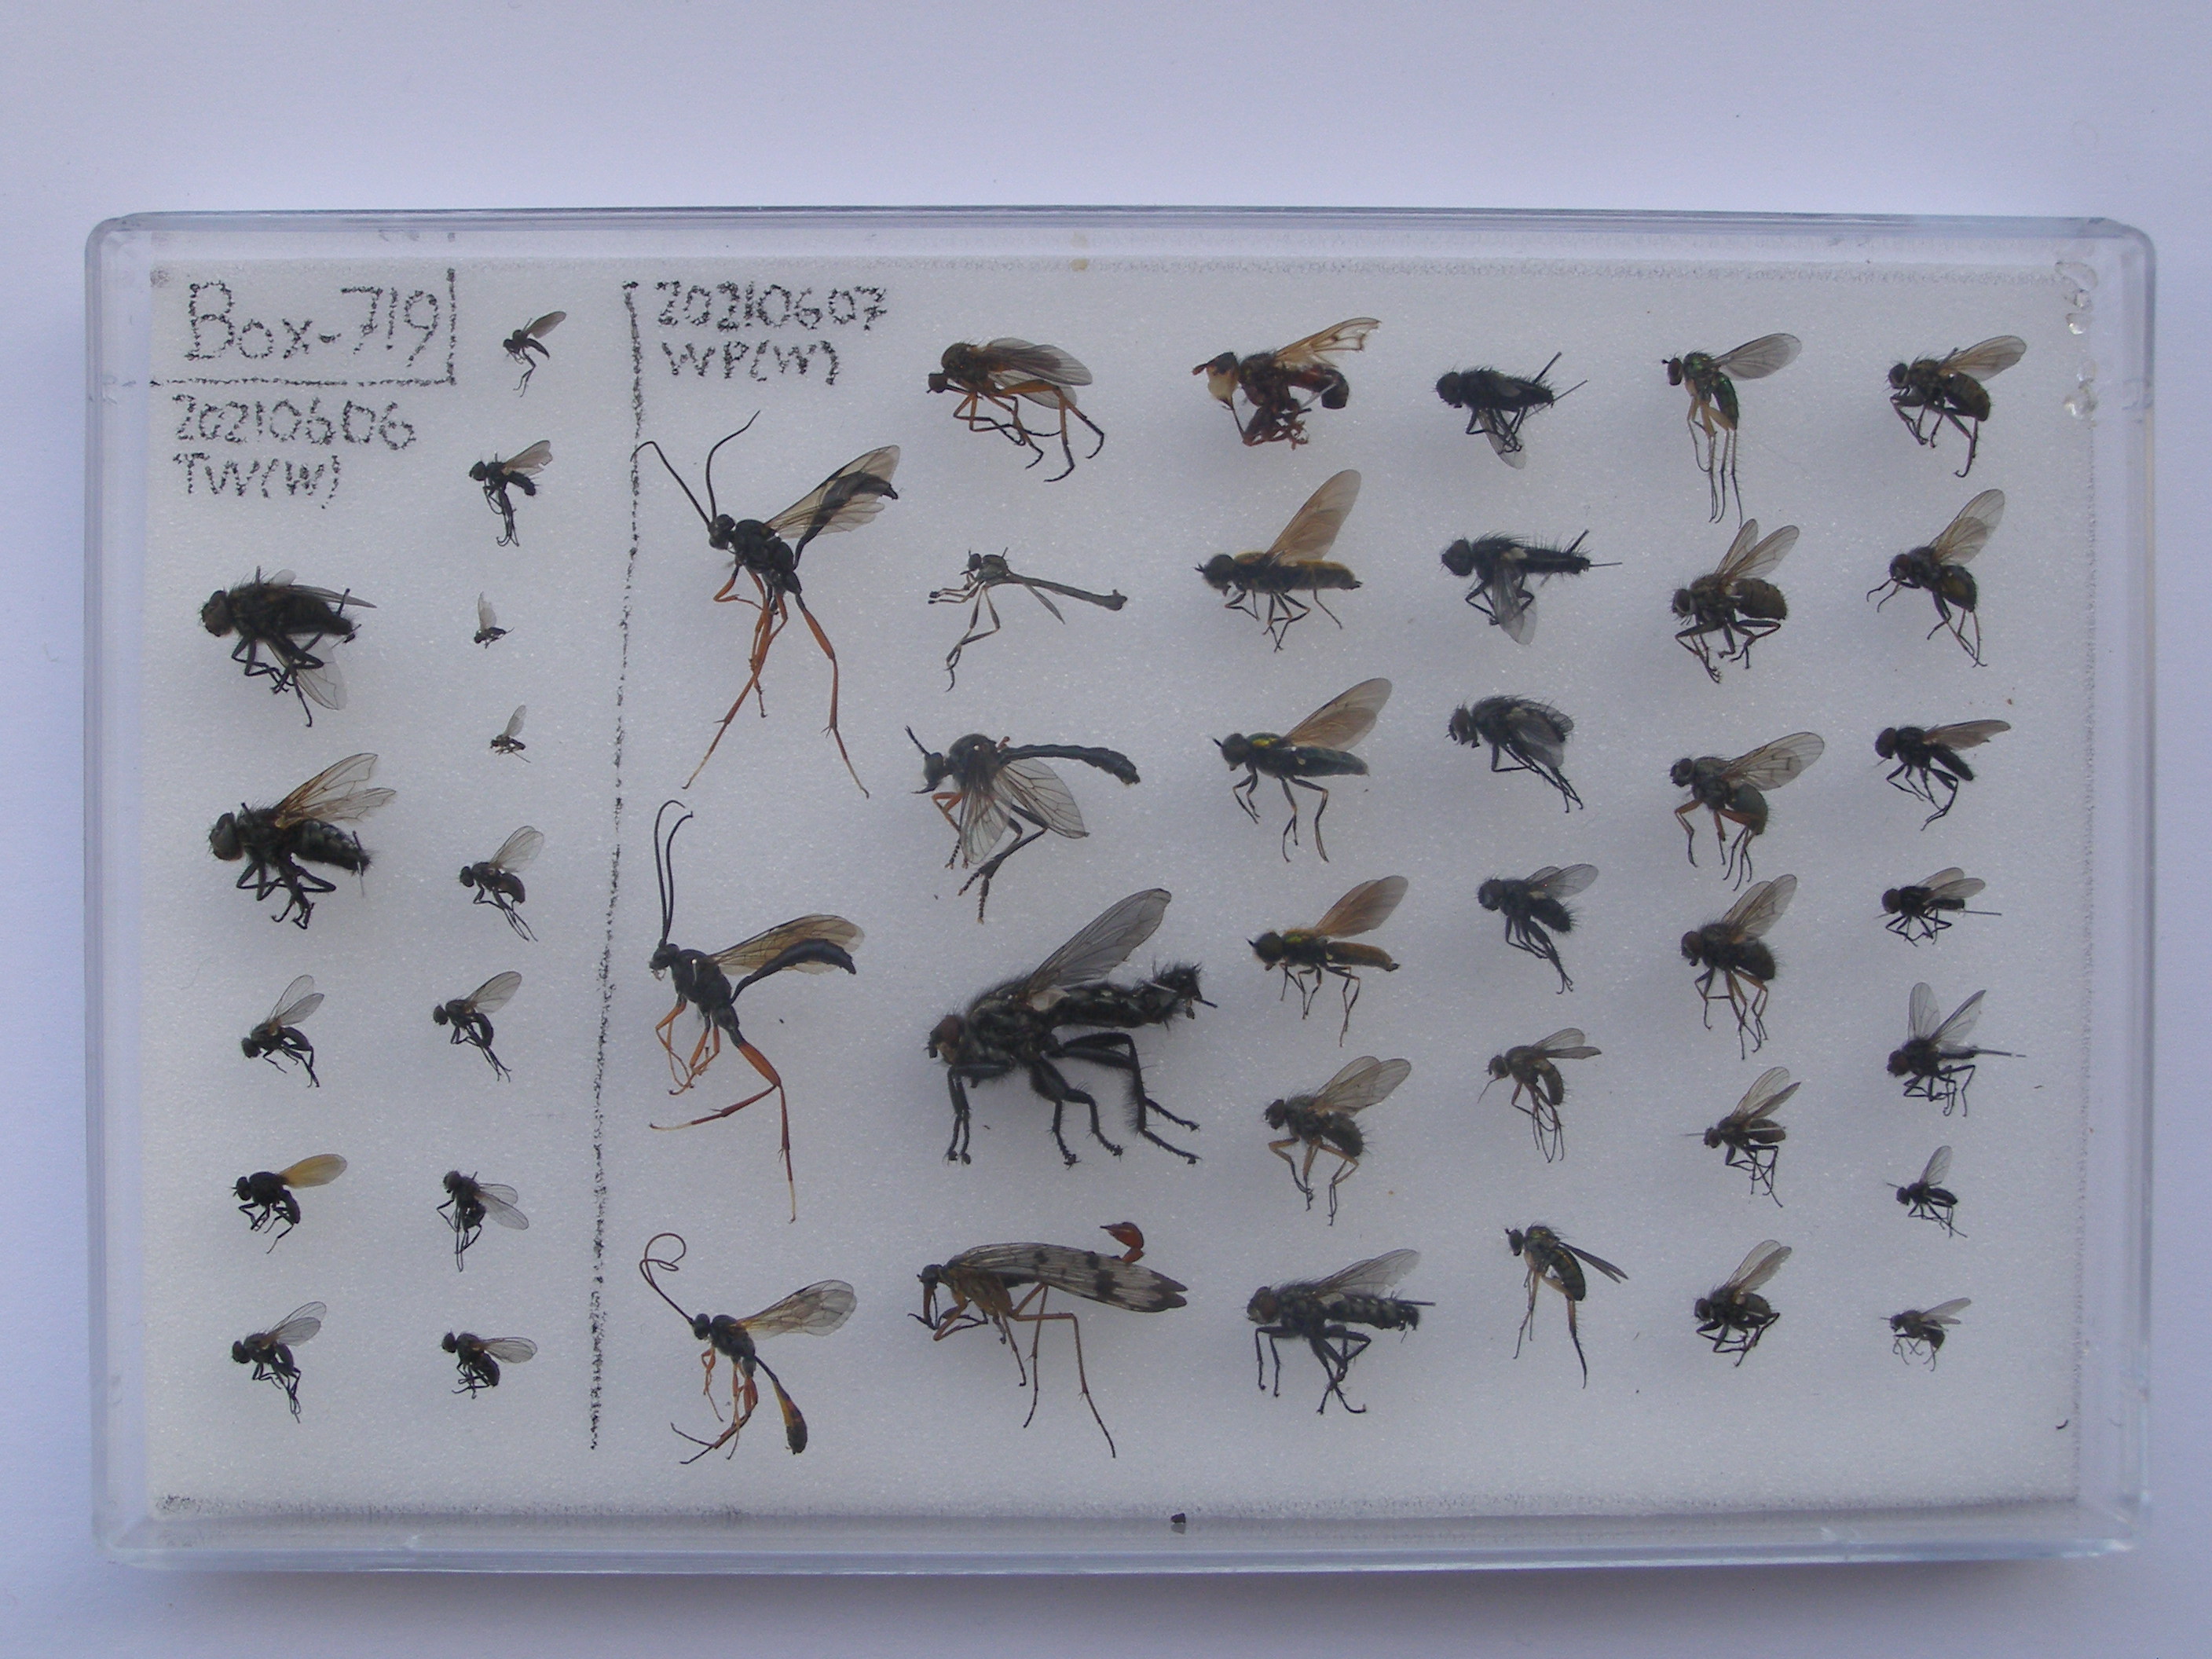 Box-719
20210606
TW(W)
20210607
WP(W)